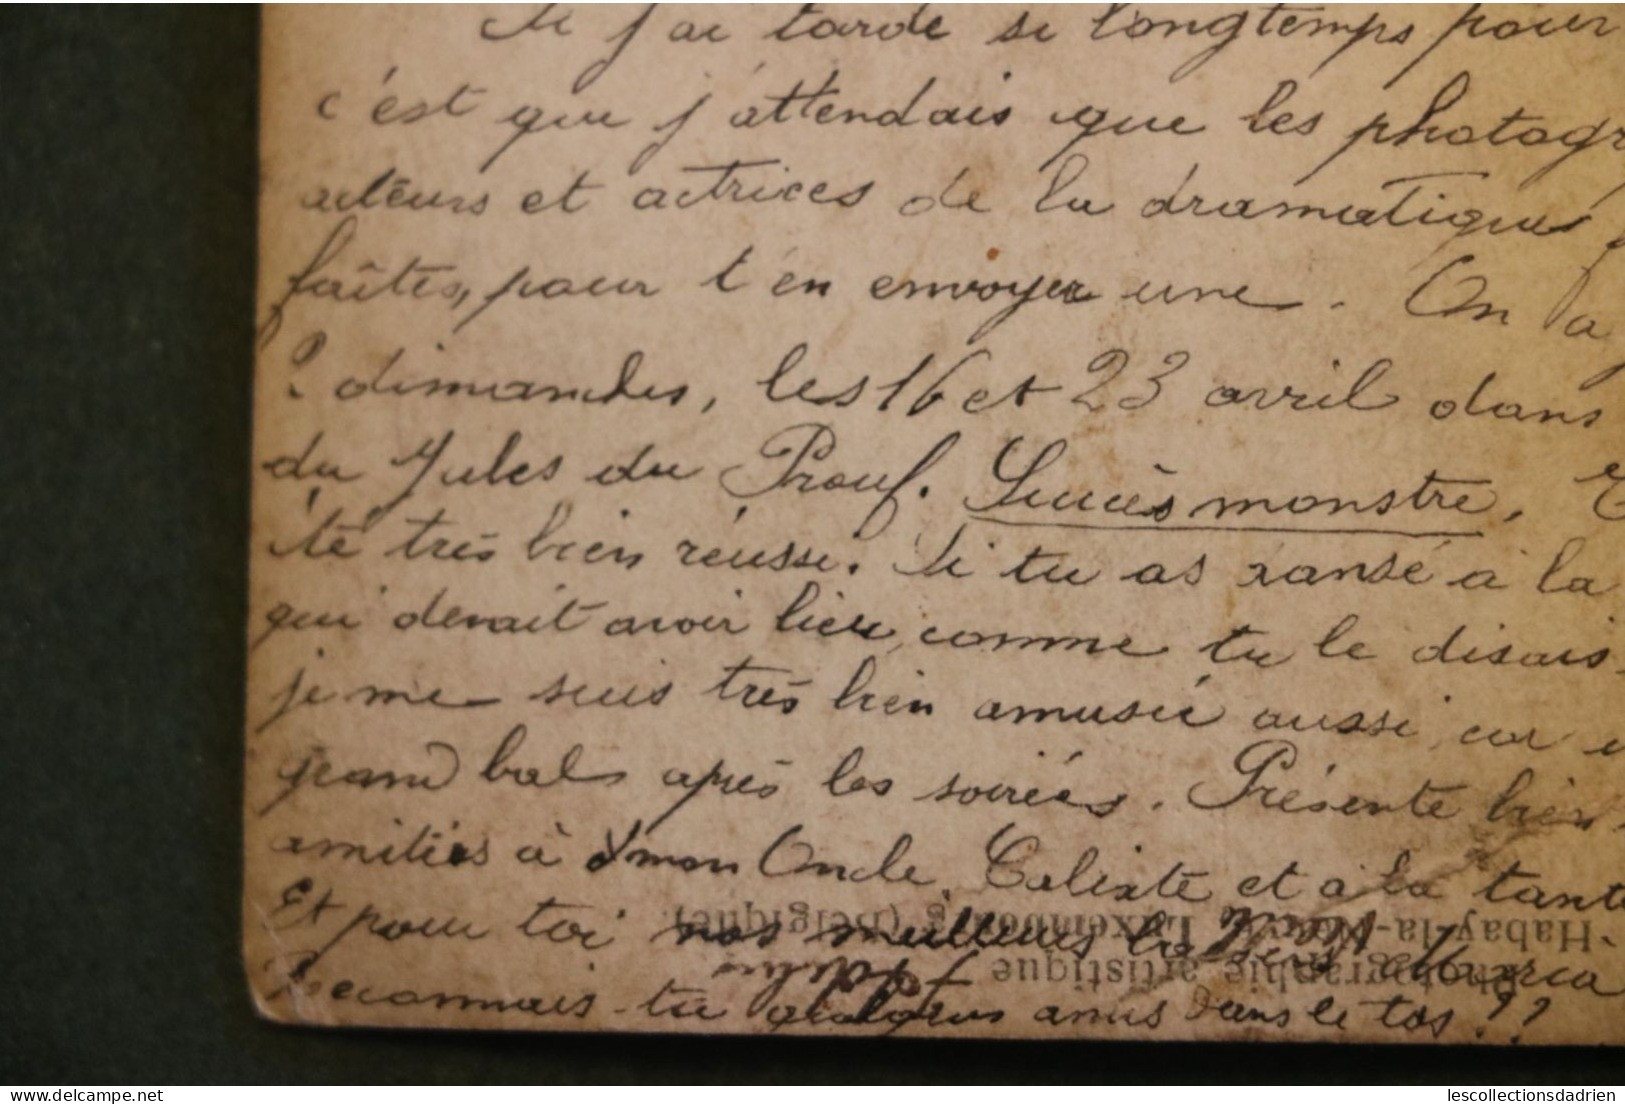 Si j'ai tardé si longtemps pour
c'est que j'attendais que les photogr
acteurs et actrices de la dramatique
faîtes, pour t'en envoyer une. On a
2 dimanches, les 16 et 23 avril dans
du Jules du Prouf. Succès monstre.
été très bien réussi. Si tu as dansé à la
qui devait avoir lieu, comme tu le disais
je me suis très bien amusée aussi, car
grand bal après les soirées. Présente bien
amitiés à mon Oncle Calixte et à la tante
Et pour toi nos meilleurs Maria
Reconnais-tu quelques amis dans le tas??
Photographie artistique
Habay-la-Neuve, Luxembourg (Belgique)
lescollectionsdadrien